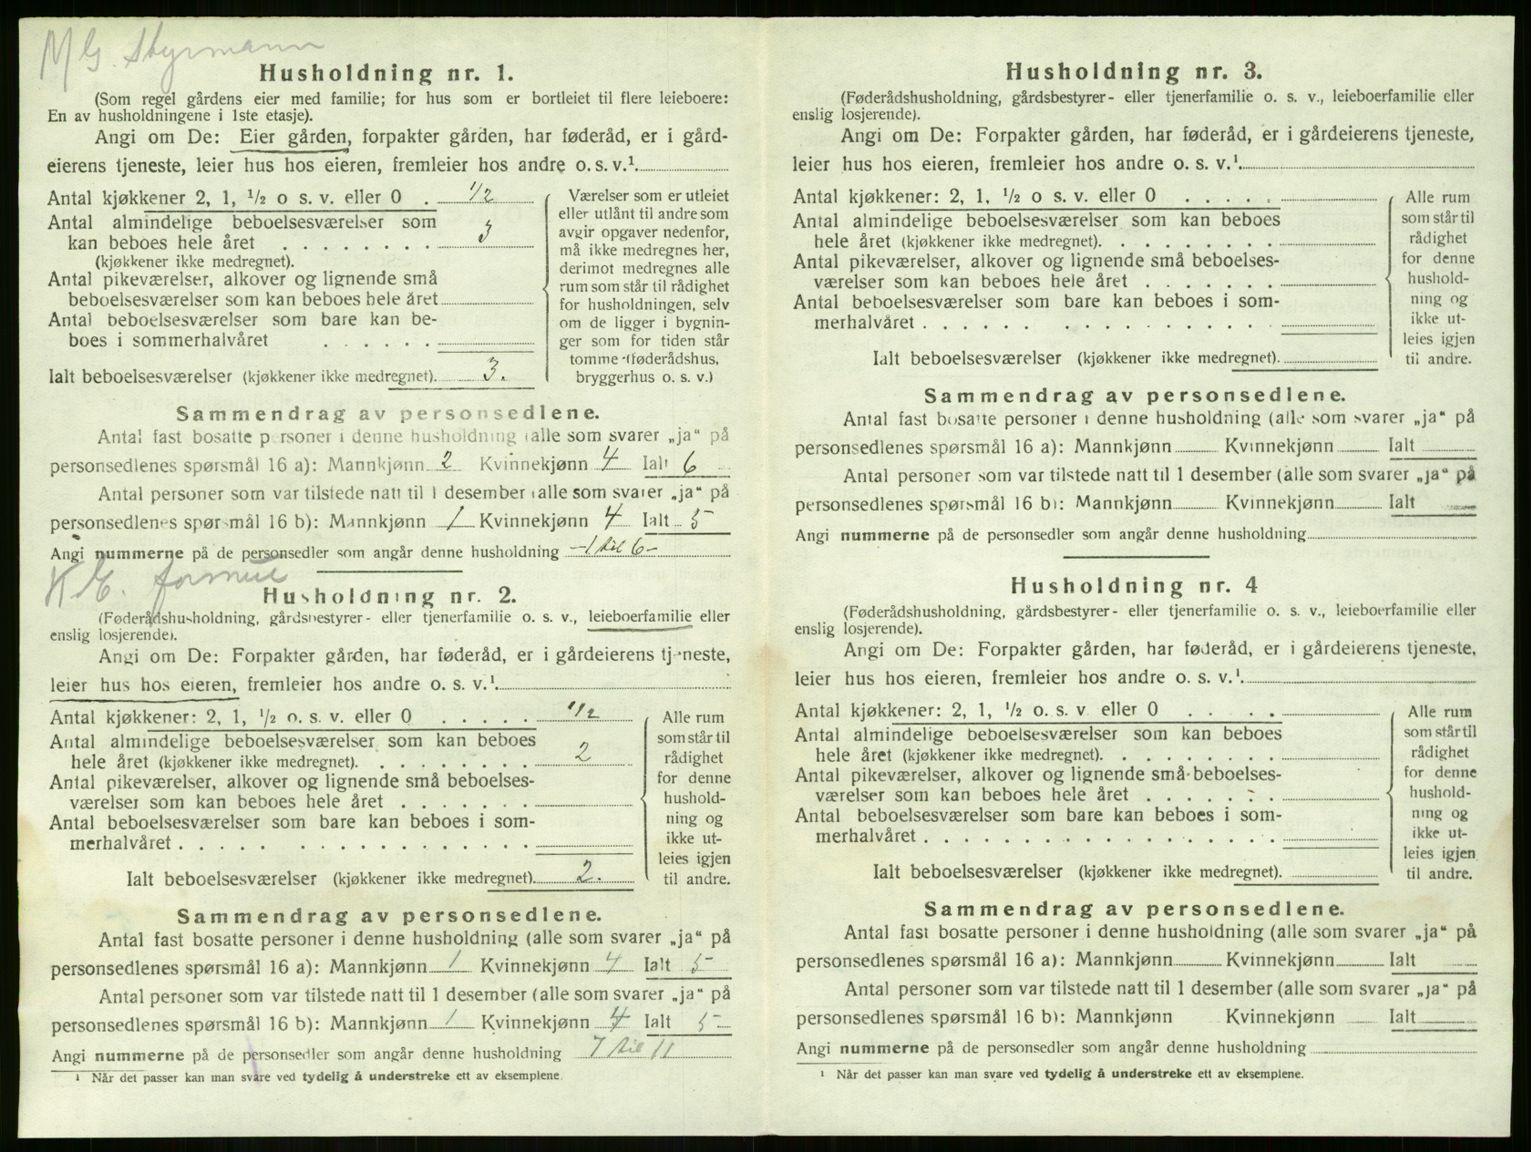 M G. Styrmann
Husholdning nr. 1.
(Som regel gårdens eier med familie; for hus som er bortleiet til flere leieboere:
En av husholdningene i 1ste etasje).
Angi om De: Eier gården, forpakter gården, har føderåd, er i gård-
eierens tjeneste, leier hus hos eieren, fremleier hos andre o. s. v.¹
Antal kjøkkener 2, 1, ½ o s. v. eller 0 . 1/2
Antal almindelige beboelsesværelser som
kan beboes hele året . . . . . . . . 3
(kjøkkener ikke medregnet).
Antal pikeværelser, alkover og lignende små
beboelsesværelser som kan beboes hele året
Antal beboelsesværelser som bare kan be-
boes i sommerhalvåret . . . . . .
Ialt beboelsesværelser (kjøkkener ikke medregnet). 3.
Værelser som er utleiet
eller utlånt til andre som
avgir opgaver nedenfor,
må ikke medregnes her,
derimot medregnes alle
rum som står til rådighet
for husholdningen, selv
om de ligger i bygnin-
ger som for tiden står
tomme (føderådshus,
bryggerhus o. s. v.)
Sammendrag av personsedlene.
Antal fast bosatte personer i denne husholdning (alle som svarer „ja“ på
personsedlenes spørsmål 16 a): Mannkjønn 2 Kvinnekjønn 4 Ialt 6
Antal personer som var tilstede natt til 1 desember (alle som svarer „ja“ på
personsedlenes spørsmål 16 b): Mannkjønn 1 Kvinnekjønn 4 Ialt 5
Angi nummerne på de personsedler som angår denne husholdning -1 til 6-
K E. formue
Husholdning nr. 2.
(Føderådshusholdning, gårdsbestyrer- eller tjenerfamilie o. s. v., leieboerfamilie eller
enslig losjerende).
Angi om De: Forpakter gården, har føderåd, er i gårdeierens tjeneste,
leier hus hos eieren, fremleier hos andre o. s. v.¹
Antal kjøkkener: 2, 1, ½ o. s. v. eller 0 . . . . . 1/2
Antal almindelige beboelsesværelser som kan beboes
hele året (kjøkkener ikke medregnet). . . . . . . . . 2
Antal pikeværelser, alkover og lignende små beboelses-
værelser som kan beboes hele året . . . . . . .
Antal beboelsesværelser som bare kan beboes i som-
merhalvåret . . . . . . . . . . . . . . . . . .
Ialt beboelsesværelser (kjøkkener ikke medregnet). 2.
Alle rum
som står til
rådighet
for denne
hushold-
ning og
ikke ut-
leies igjen
til andre.
Sammendrag av personsedlene.
Antal fast bosatte personer i denne husholdning (alle som svarer „ja“ på
personsedlenes spørsmål 16 a): Mannkjønn 1 Kvinnekjønn 4 Ialt 5
Antal personer som var tilstede natt til 1 desember (alle som svarer „ja“ på
personsedlenes spørsmål 16 b): Mannkjønn 1 Kvinnekjønn 4 Ialt 5
Angi nummerne på de personsedler som angår denne husholdning 7 til 11
¹ Når det passer kan man svare ved tydelig å understreke ett av eksemplene.
Husholdning nr. 3.
(Føderådshusholdning, gårdsbestyrer- eller tjenerfamilie o. s. v., leieboerfamilie eller
enslig losjerende).
Angi om De: Forpakter gården, har føderåd, er i gårdeierens tjeneste,
leier hus hos eieren, fremleier hos andre o. s. v.¹
Antal kjøkkener: 2, 1, ½ o. s. v. eller 0 . . . . .
Antal almindelige beboelsesværelser som kan beboes
hele året (kjøkkener ikke medregnet). . . . . . . . .
Antal pikeværelser, alkover og lignende små beboelses-
værelser som kan beboes hele året . . . . . . .
Antal beboelsesværelser som bare kan beboes i som-
merhalvåret . . . . . . . . . . . . . . . . . .
Ialt beboelsesværelser (kjøkkener ikke medregnet).
Alle rum
som står til
rådighet
for denne
hushold-
ning og
ikke ut-
leies igjen
til andre.
Sammendrag av personsedlene.
Antal fast bosatte personer i denne husholdning (alle som svarer „ja“ på
personsedlenes spørsmål 16 a): Mannkjønn Kvinnekjønn Ialt
Antal personer som var tilstede natt til 1 desember (alle som svarer „ja“ på
personsedlenes spørsmål 16 b): Mannkjønn Kvinnekjønn Ialt
Angi nummerne på de personsedler som angår denne husholdning
Husholdning nr. 4
(Føderådshusholdning, gårdsbestyrer- eller tjenerfamilie o. s. v., leieboerfamilie eller
enslig losjerende).
Angi om De: Forpakter gården, har føderåd, er i gårdeierens tjeneste,
leier hus hos eieren, fremleier hos andre o. s. v.¹
Antal kjøkkener: 2, 1, ½ o. s. v eller 0 . . . .
Antal almindelige beboelsesværelser som kan beboes
hele året (kjøkkener ikke medregnet). . . . . . . . .
Antal pikeværelser, alkover og lignende små beboelses-
værelser som kan beboes hele året . . . . . . .
Antal beboelsesværelser som bare kan beboes i som-
merhalvåret . . . . . . . . . . . . . . . . . .
Ialt beboelsesværelser (kjøkkener ikke medregnet).
Alle rum
som står til
rådighet
for denne
hushold-
ning og
ikke ut-
leies igjen
til andre.
Sammendrag av personsedlene.
Antal fast bosatte personer i denne husholdning (alle som svarer „ja“ på
personsedlenes spørsmål 16 a): Mannkjønn Kvinnekjønn Ialt
Antal personer som var tilstede natt til 1 desember (alle som svarer „ja“ på
personsedlenes spørsmål 16 b): Mannkjønn Kvinnekjønn Ialt
Angi nummerne på de personsedler som angår denne husholdning
¹ Når det passer kan man svare ved tydelig å understreke ett av eksemplene.